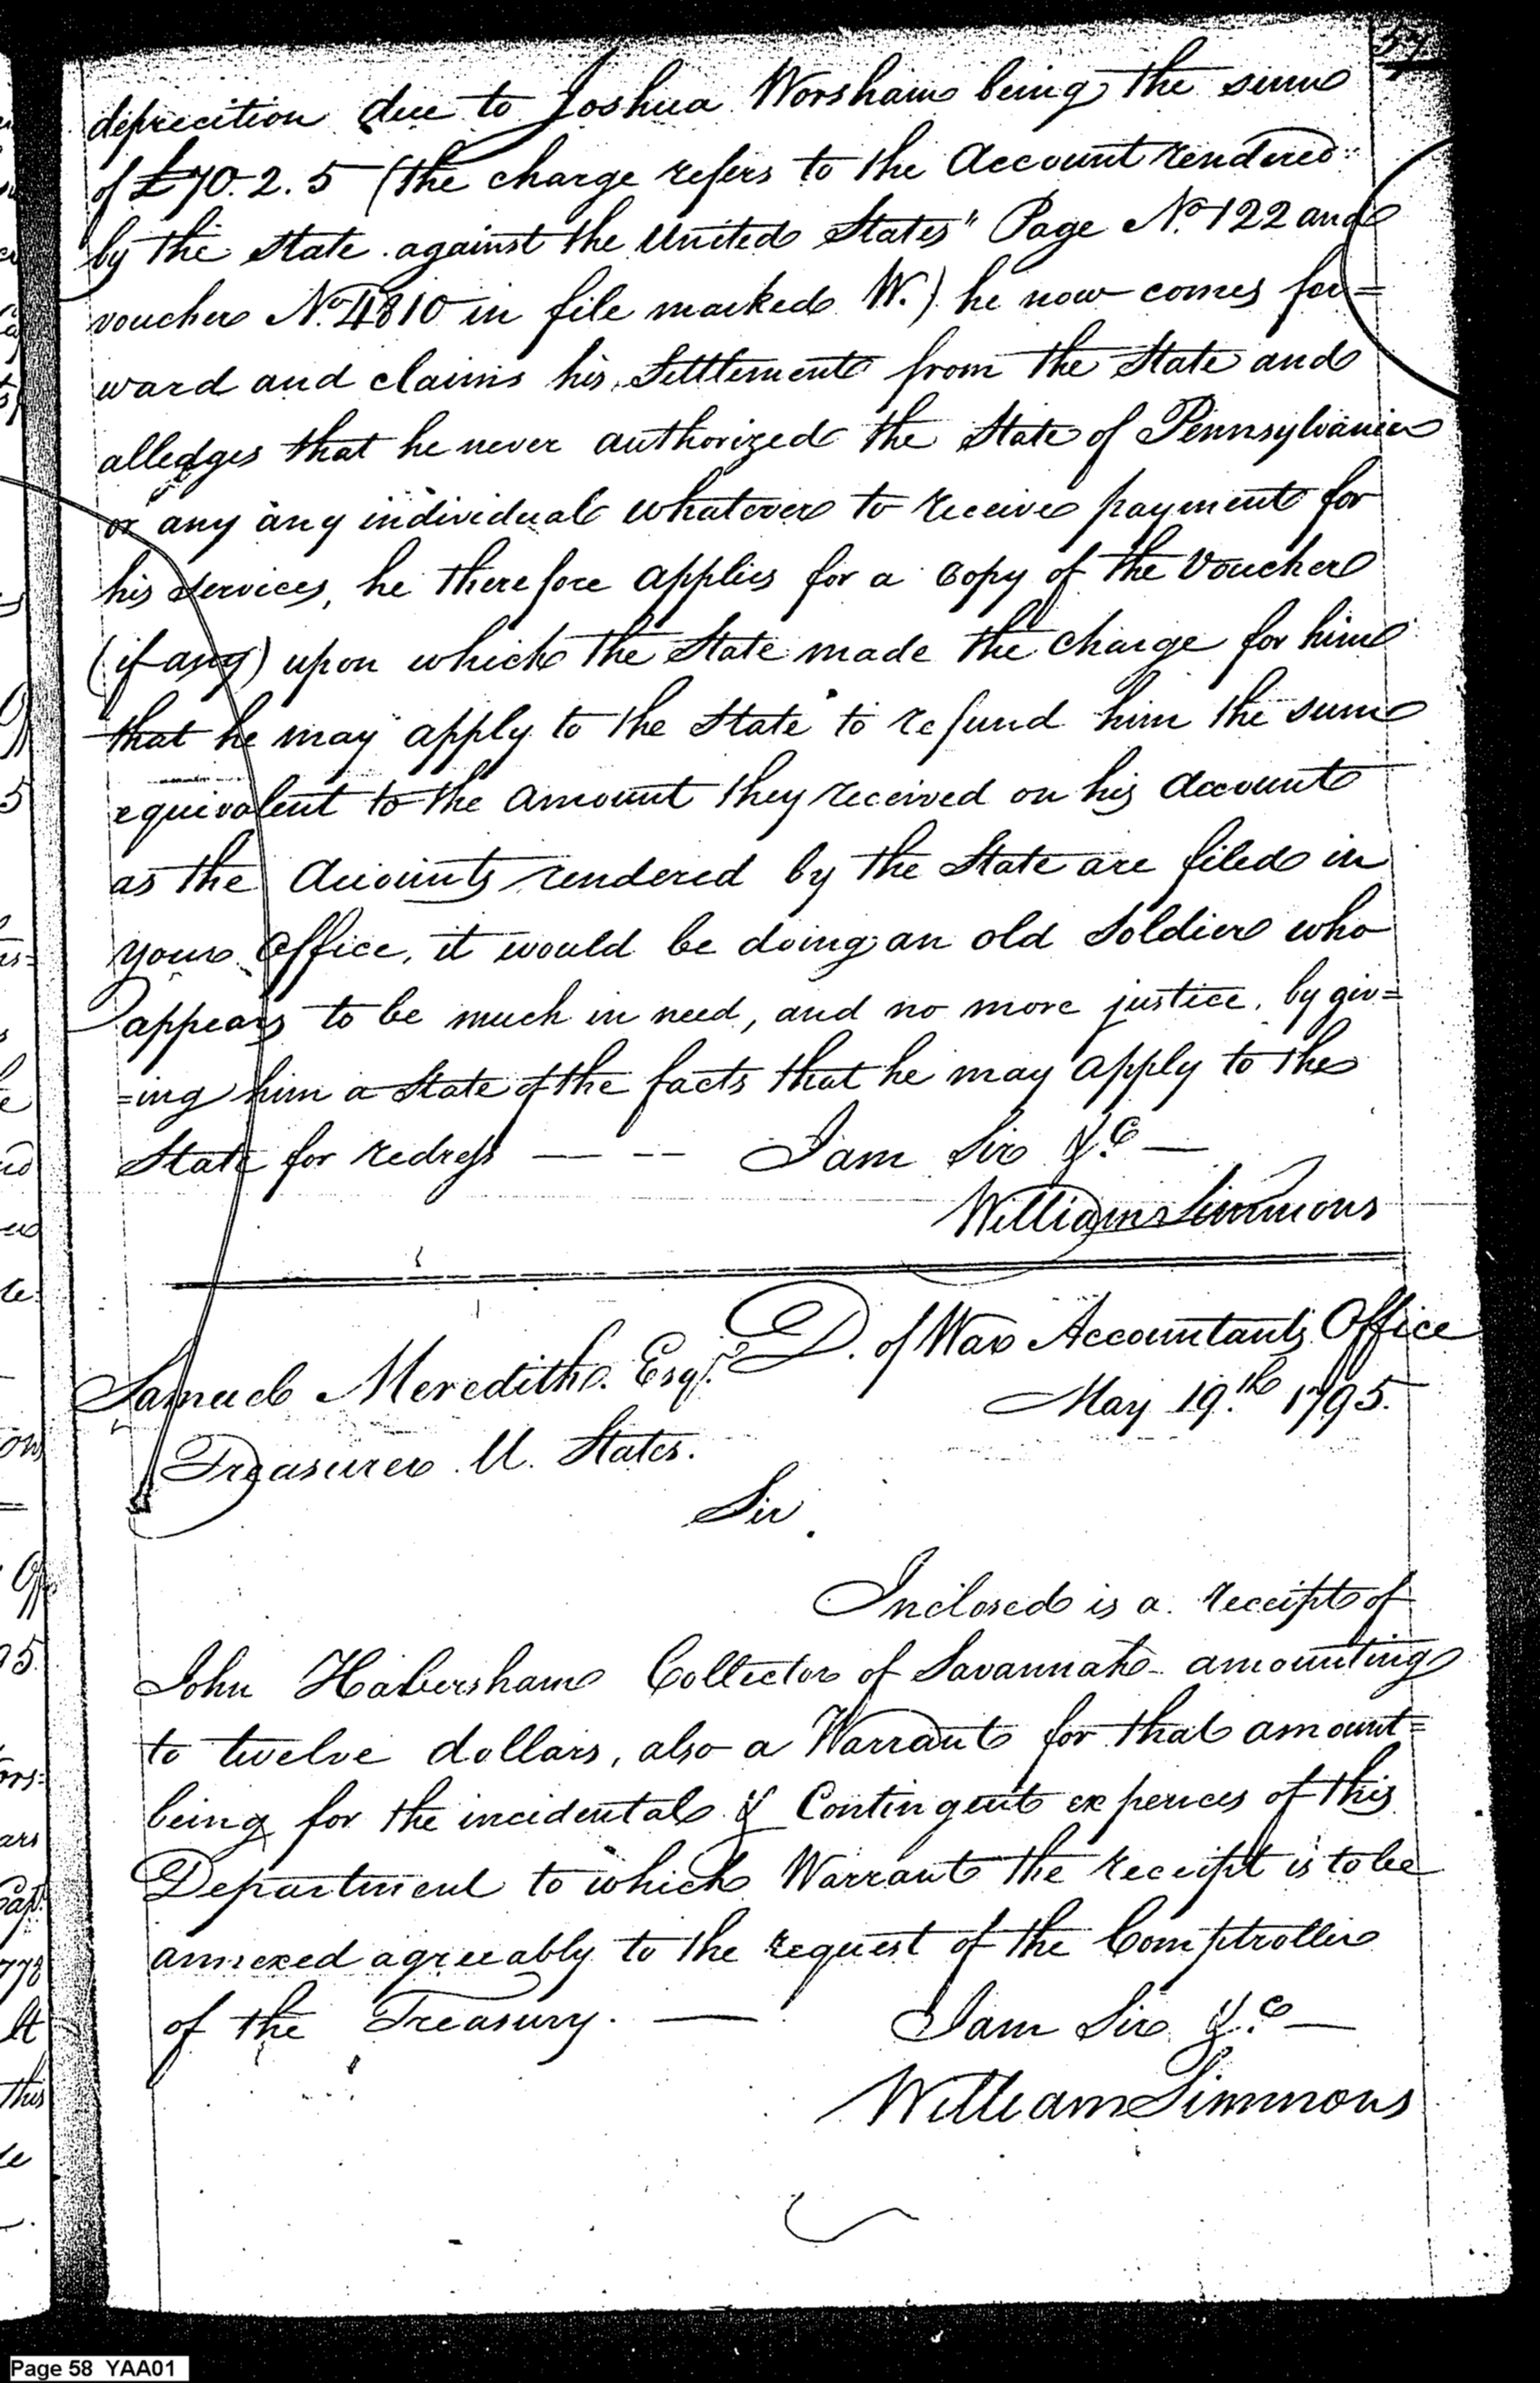 57
depreciation due to Joshua Worsham being the sum
of £70. 2. 5 (the charge refers to the Account rendered
by the State against the United States" Page No. 122 and
voucher No. 4810 in file marked W.) he now comes for=
ward and claims his Settlement from the State and
alledges that he never authorized the State of Pennsylvania
or any any individual whatever to receive payment for
his services, he therefore applies for a Copy of the Voucher
(if any) upon which the State made the Charge for him
that he may apply to the State to refund him the sum
equivalent to the Amount they received on his Account
as the Accounts rendered by the State are filed in
your Office, it would be doing an old Soldier who
appears to be much in need, and no more justice, by giv=
=ing him a State of the facts that he may apply to the
State for redress — — — I am Sir &c —
William Simmons
D. of War Accountants Office
May 19th 1795.
Samuel Meredith Esqr.
Treasurer U. States.
Sir
Inclosed is a receipt of
John Habersham Collector of Savannah amounting
to twelve dollars, also a Warrant for that amount=
being for the incidental & Contingent expences of this
Department to which Warrant the receipt is to be
annexed agreeably to the request of the Comptroller
of the Treasury. — I am Sir &c —
William Simmons
Page 58 YAA01